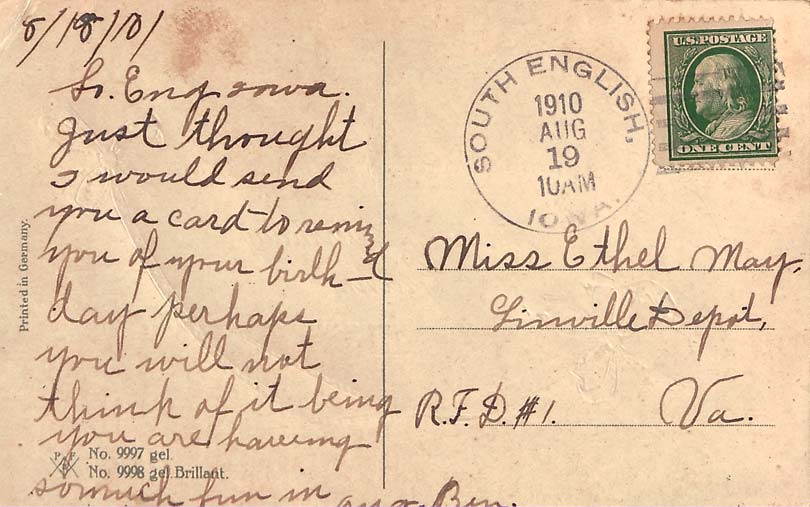 8/18/10/
So. Eng Iowa.
Just thought
I would send
you a card to remind
you of your birth-
day perhaps
you will not
think of it being
you are haveing
so much fun in
SOUTH ENGLISH,
1910
AUG
19
10AM
IOWA.
U.S. POSTAGE
ONE CENT
Miss Ethel May,
Linville Depot,
R.F.D. #1. Va.
Printed in Germany.
P F B
No. 9997 gel.
No. 9998 gel. Brillant.